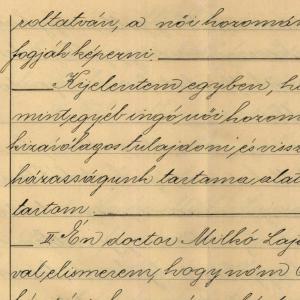 roltatván, a női hozomán
fogják képezni.
Kijelentem egyben, h
mint egyéb ingó, női hozom
kizárólagos tulajdoni, és vissz
házasságunk tartama alat
tartom.
II. Én doctor Milkó Laj
val, elismerem, hogy nőm